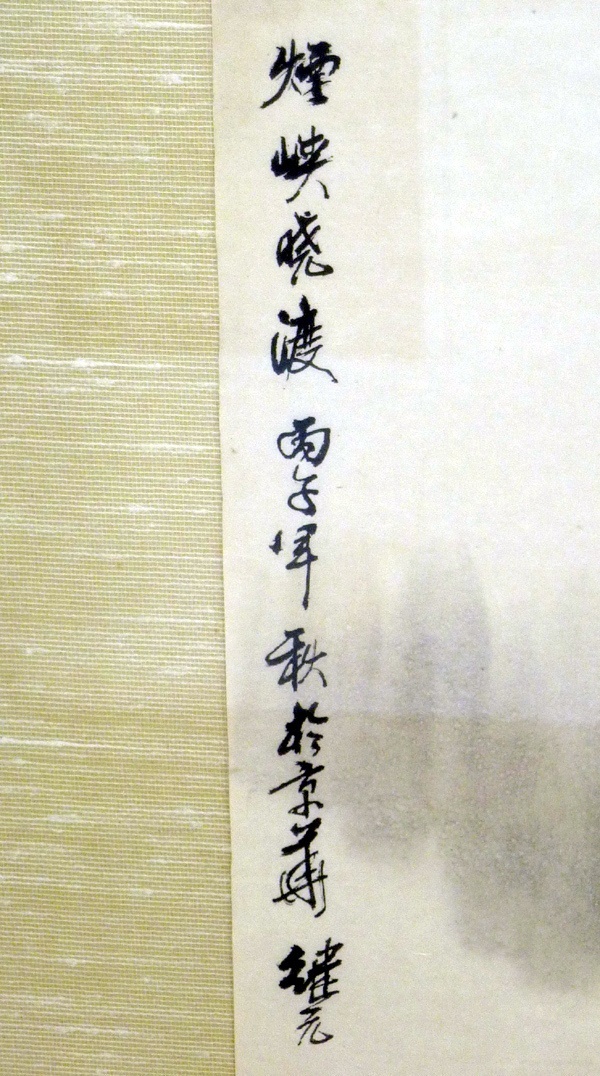 煙峡晓渡 丙午年秋於京華 元